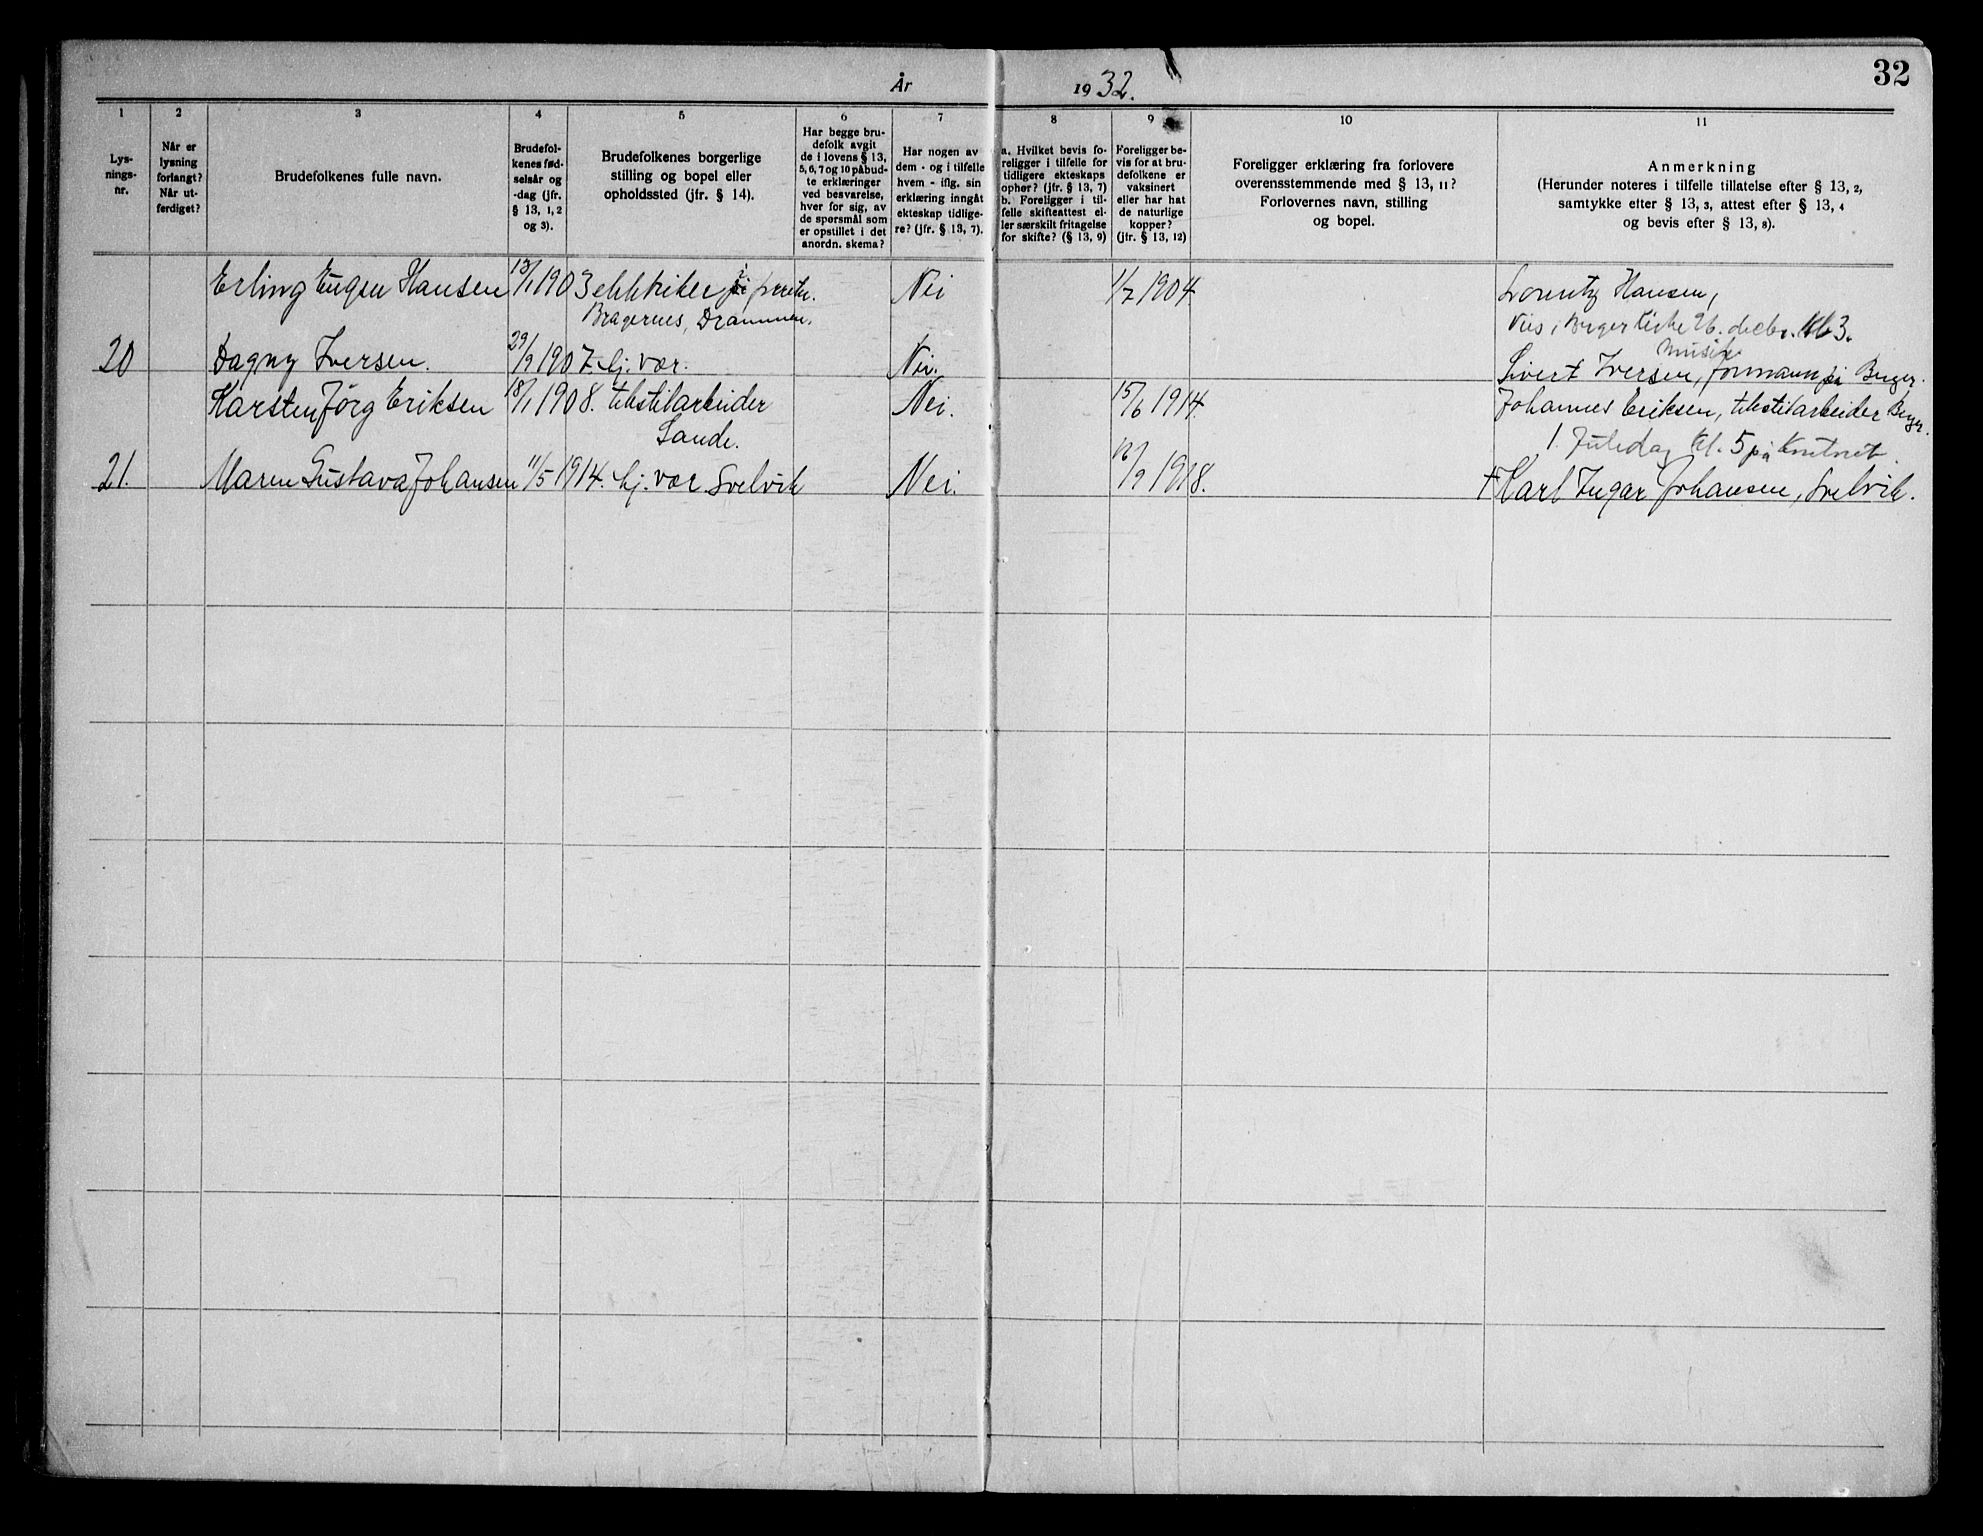 32
År 1932.
1
Lys-
nings-
nr.
2
Når er
lysning
forlangt?
Når ut-
ferdiget?
3
Brudefolkenes fulle navn.
4
Brudefol-
kenes fød-
selsår og
-dag (jfr.
§ 13, 1, 2
og 3).
5
Brudefolkenes borgerlige
stilling og bopel eller
opholdssted (jfr. § 14).
6
Har begge bru-
defolk avgit
de i lovens § 13,
5, 6, 7 og 10 påbud-
te erklæringer
ved besvarelse,
hver for sig, av
de spørsmål som
er opstillet i det
anordn. skema?
7
Har nogen av
dem - og i tilfelle
hvem - iflg. sin
erklæring inngåt
ekteskap tidlige-
re? (jfr. § 13, 7).
8
a. Hvilket bevis fo-
religger i tilfelle for
tidligere ekteskaps
ophør? (jfr. § 13, 7)
b. Foreligger i til-
felle skifteattest el-
ler særskilt fritagelse
for skifte? (§ 13, 9)
9
Foreligger be-
vis for at bru-
defolkene er
vaksinert
eller har hat
de naturlige
kopper?
(jfr. § 13, 12)
10
Foreligger erklæring fra forlovere
overensstemmende med § 13, 11?
Forlovernes navn, stilling
og bopel.
11
Anmerkning
(Herunder noteres i tilfelle tillatelse efter § 13, 2,
samtykke efter § 13, 3, attest efter § 13, 4
og bevis efter § 13, 8).
Erling Eugen Hansen 13/1 1903 elektriker i Nei 1/7 1904 Lorentz Hansen,
Bragernes, Drammen. Berger kirke 26. decbr. kl 3.
20 Dagny Iversen. 29/9 1907. hj. vær. Nei. Sivert Iversen, formann på Berger.
Karsten Jörg Eriksen 18/1 1908. tekstilarbeider Nei. 15/6 1914. Johannes Eriksen, tekstilarbeider Berger.
Sande. 1. Juledag kl. 5 på kontoret.
21. Maren Gustava Johansen 11/5 1914. hj. vær Svelvik Nei. 12/9 1918. + Karl Ingar Johansen, Svelvik.